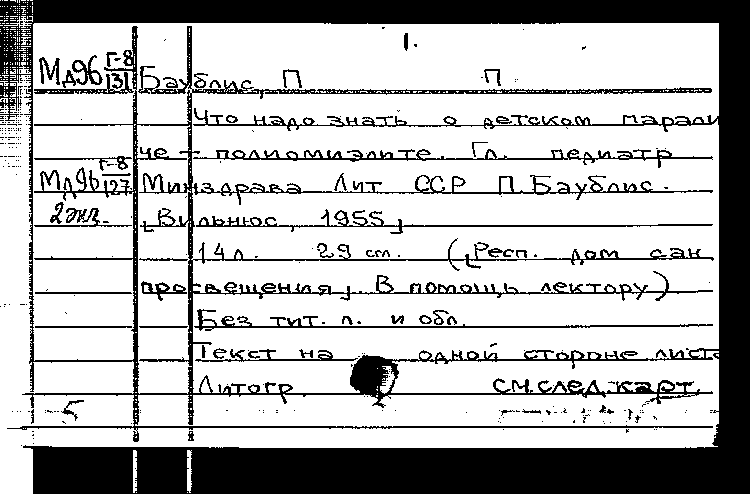 1.
Мд96 Г-8/131 Баублис, П П
Что надо знать о детском парали
че – полиомиэлите. Гл. педиатр
Мд96 Г-8/127 Минздрава Лит ССР П. Баублис.
2 экз. [Вильнюс, 1955]
14 л. 29 см. ([Респ. дом сан.
просвещения]. В помощь лектору)
Без тит. л. и обл.
Текст на одной стороне листа
Литогр. см. след. карт.
5 2